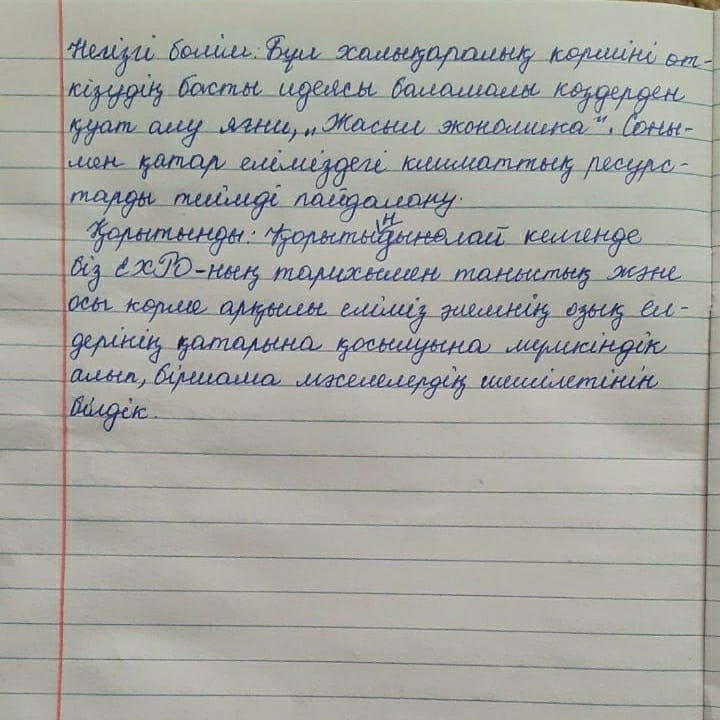 Негізгі бөлім: Бұл халықаралық көрмені өт-
кізудің басты идеясы баламалы көздерден
қуат алу яғни, „Жасыл экономика“. Соны-
мен қатар еліміздегі климаттық ресурс-
тарды тиімді пайдалану.
Қорытынды: Қорытындылай келгенде
біз EXPO-ның тарихымен таныстық және
осы көрме арқылы еліміз әлемнің озық ел-
дерінің қатарына қосылуына мүмкіндік
алып, біршама мәселелердің шешілетінін
білдік.